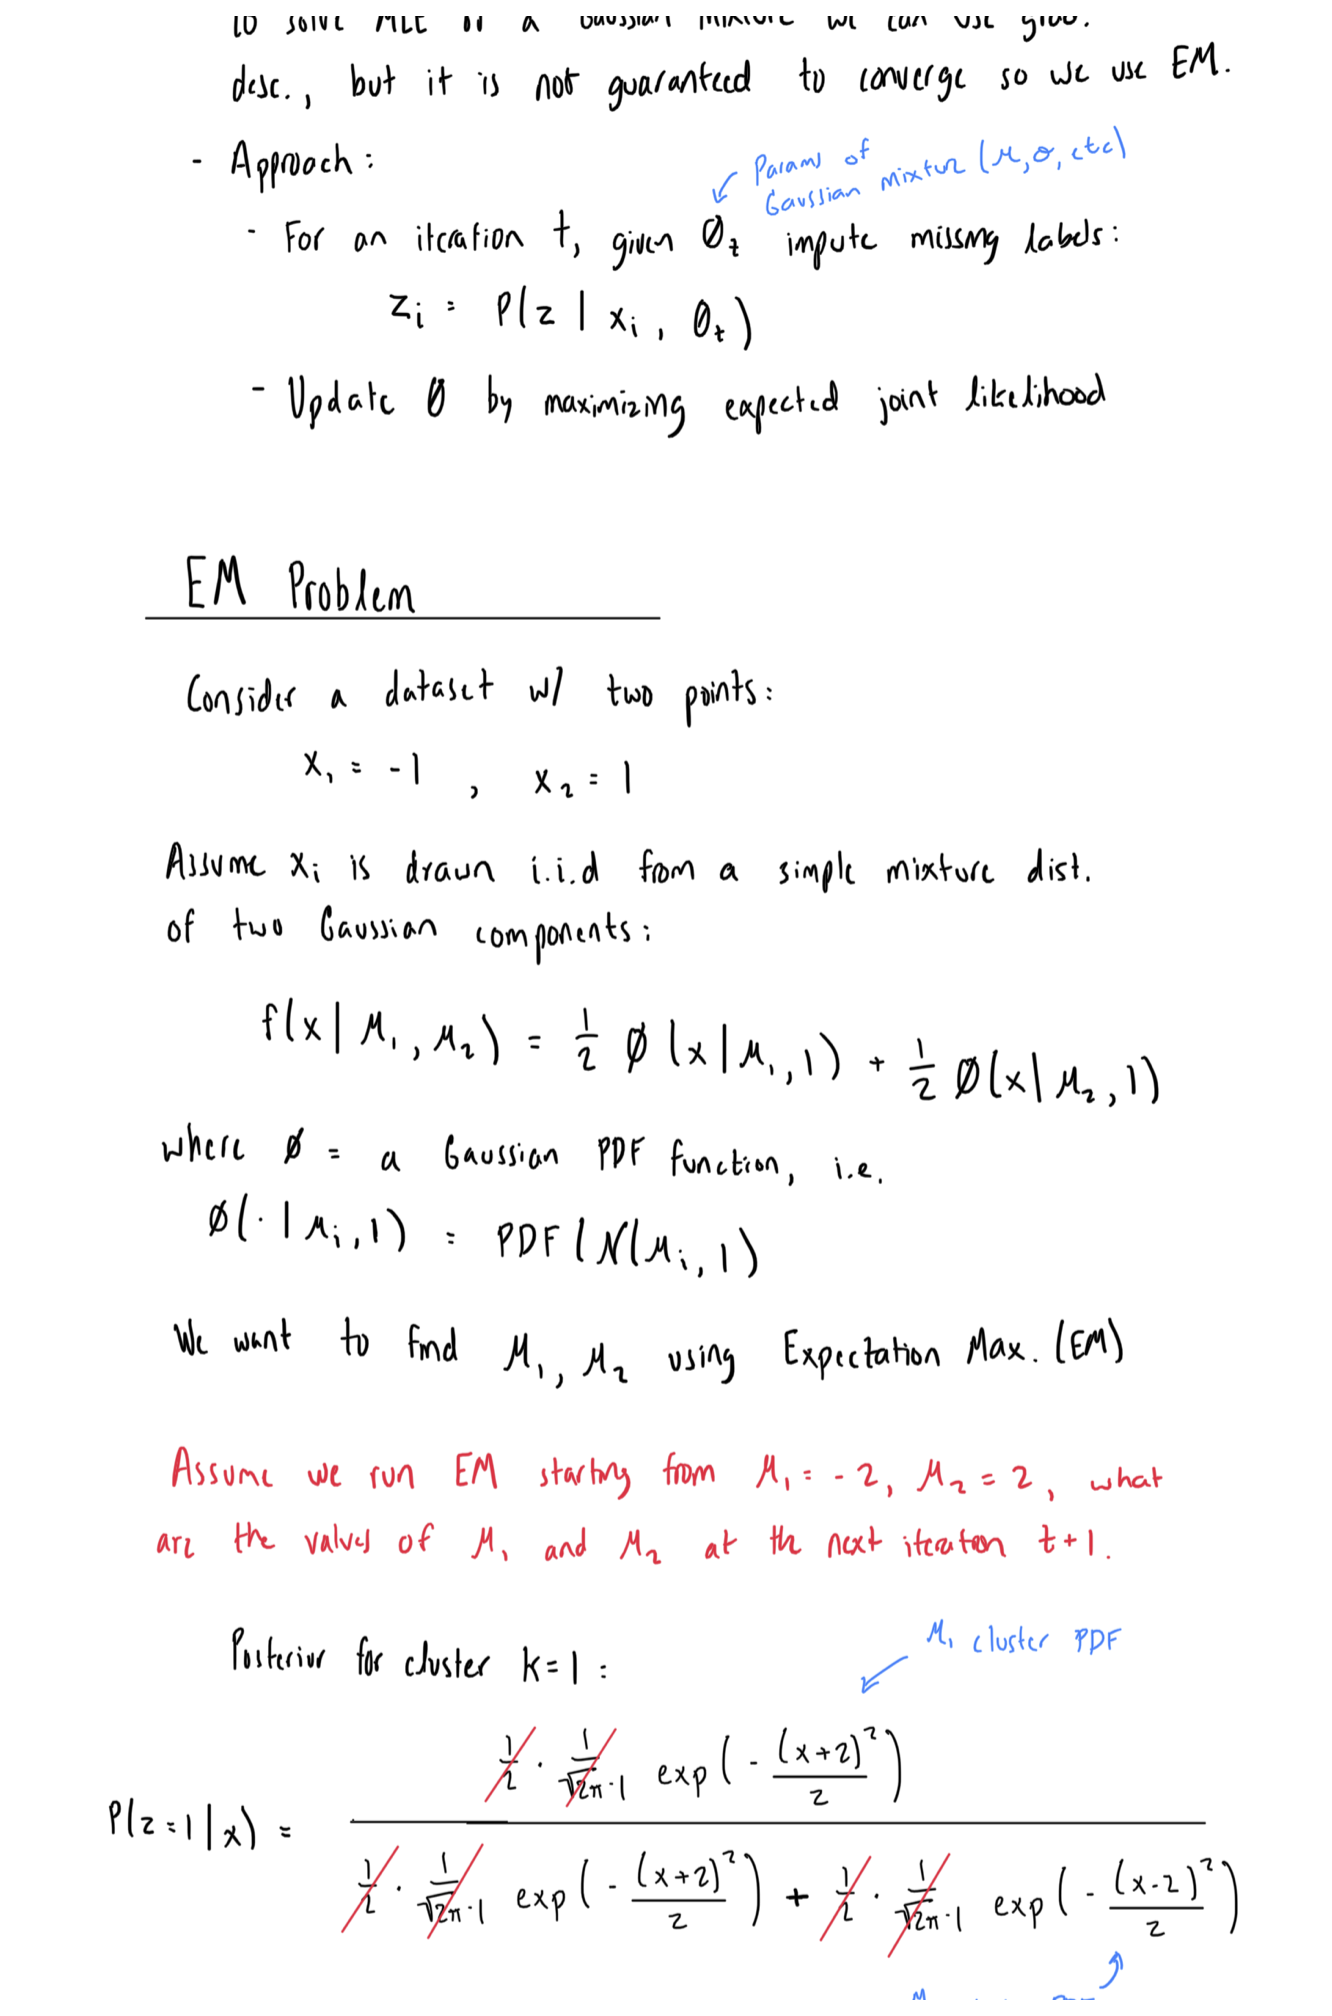 to solve MLE of a Gaussian mixture we can use grad.
desc., but it is not guaranteed to converge so we use EM.
- Approach:
Params of
Gaussian mixtur (μ, σ, etc)
- For an iteration t, given θₜ impute missing labels:
zᵢ = P(z | xᵢ, θₜ)
- Update θ by maximizing expected joint likelihood
EM Problem
Consider a dataset w/ two points:
x₁ = -1 , x₂ = 1
Assume xᵢ is drawn i.i.d from a simple mixture dist.
of two Gaussian components:
f(x | μ₁, μ₂) = 1/2 ø(x | μ₁, 1) + 1/2 ø(x | μ₂, 1)
where ø = a Gaussian PDF function, i.e.
ø(· | μᵢ, 1) = PDF(N(μᵢ, 1)
We want to find μ₁, μ₂ using Expectation Max. (EM)
Assume we run EM starting from μ₁ = -2, μ₂ = 2, what
are the values of μ₁ and μ₂ at the next iteration t+1.
μ₁ cluster PDF
Posterior for cluster k=1 :
1/2 · 1/√2π·1 exp(- (x+2)²/2)
P(z=1 | x) =
1/2 · 1/√2π·1 exp(- (x+2)²/2) + 1/2 · 1/√2π·1 exp(- (x-2)²/2)